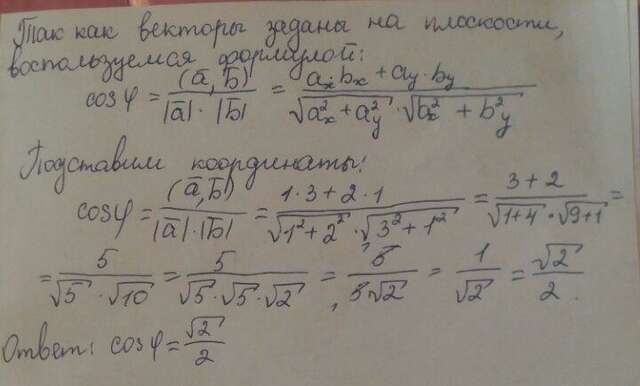 Так как векторы заданы на плоскости,
воспользуемся формулой:
cos φ = (a̅, b̅) / |a̅|·|b̅| = aₓ·bₓ + a_y·b_y / √(aₓ² + a_y²)·√(bₓ² + b_y²)
Подставим координаты:
cos φ = (a̅, b̅) / |a̅|·|b̅| = 1·3 + 2·1 / √(1² + 2²)·√(3² + 1²) = 3 + 2 / √(1+4)·√(9+1) =
= 5 / √5·√10 = 5 / √5·√5·√2 = 5 / 5√2 = 1 / √2 = √2 / 2.
Ответ: cos φ = √2 / 2